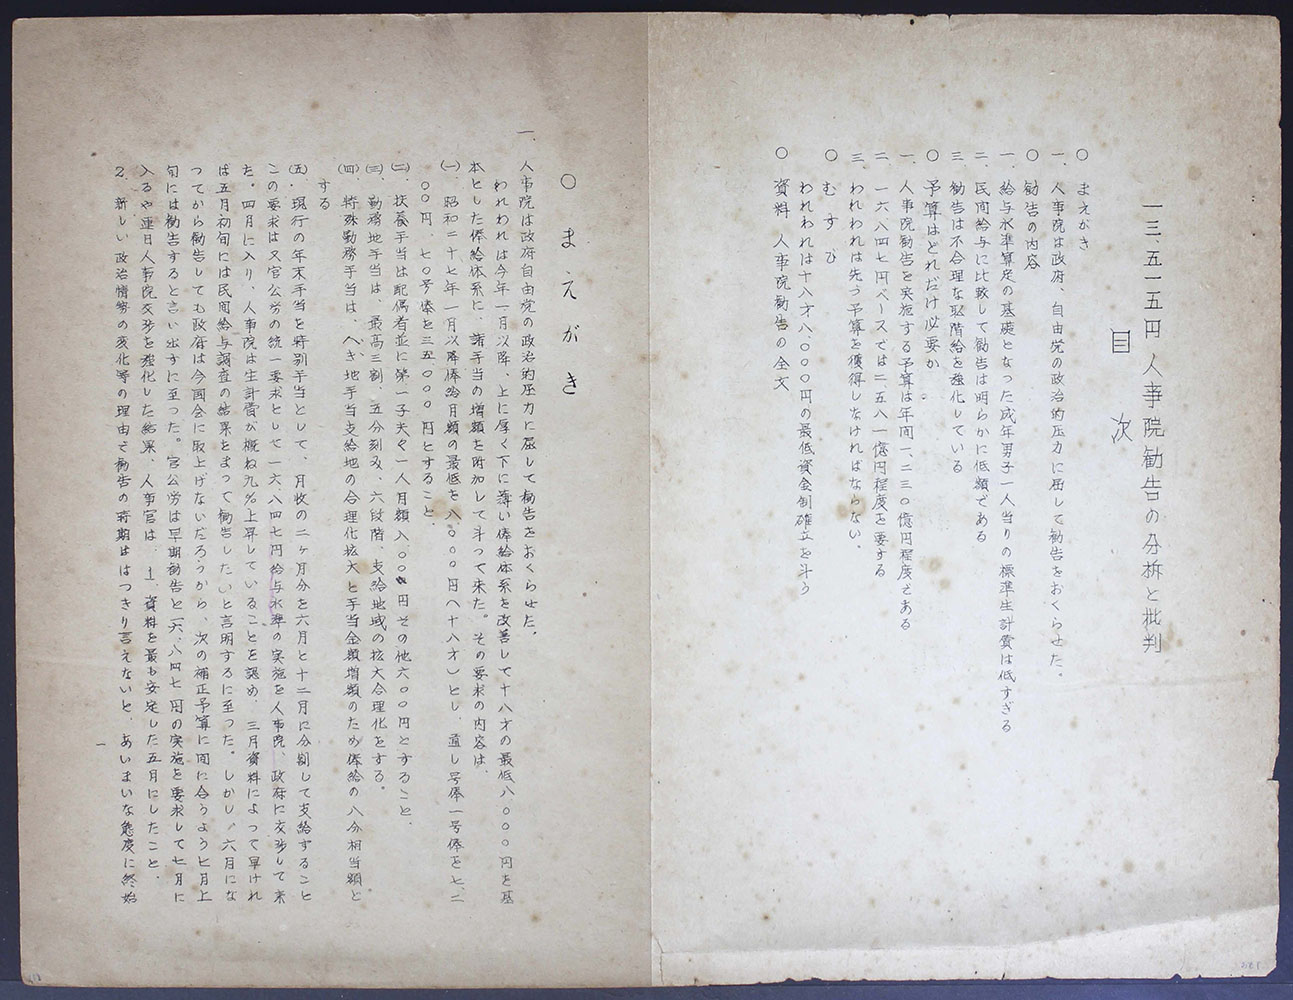 一三、五一五円人事院勧告の分析と批判
目次
○ まえがき
一、人事院は政府、自由党の政治的圧力に屈して勧告をおくらせた。
○ 勧告の内容
一、給与水準算定の基礎となった成年男子一人当りの標準生計費は低すぎる
二、民間給与に比較して勧告は明らかに低額である
三、勧告は不合理な職階給を強化している
○ 予算はどれだけ必要か
一、人事院勧告を実施する予算は年間一、二三〇億円程度である
二、一六八四七円ベースでは二、五八一億円程度を要する
三、われわれは先づ予算を獲得しなければならない。
○ むすび
われわれは十八才八、〇〇〇円の最低賃金制確立を斗う
○ 資料 人事院勧告の全文
○ まえがき
一、人事院は政府自由党の政治的圧力に屈して勧告をおくらせた。
われわれは今年一月以降、上に厚く下に薄い俸給体系を改善して十八才の最低八〇〇〇円を基
本とした俸給体系に、諸手当の増額を附加して斗つて来た。その要求の内容は、
(一)、昭和二十七年一月以降俸給月額の最低を八、〇〇〇円(十八才)とし、直し号俸一号俸を七、二
〇〇円、七〇号俸を三五〇〇〇円とすること、
(二)、扶養手当は配偶者並に第一子夫々一人月額八〇〇円その他六〇〇円とすること、
(三)、勤務地手当は、最高三割、五分刻み、六段階、支給地域の拡大合理化をする。
(四)、特殊勤務手当は、へき地手当支給地の合理化拡大と手当金額増額のため俸給の八分相当額と
する
(五)、現行の年末手当を特別手当として、月收の二ヶ月分を六月と十二月に分割して支給すること
この要求は又官公労の統一要求として一六八四七円給与水準の実施を人事院、政府に交渉して来
た。四月に入り、人事院は生計費が概ね九%上昇していることを認め、三月資料によつて早ければ
ば五月初旬には民間給与調査の結果をまつて勧告したいと言明するに至つた。しかし、六月にな
つてから勧告しても政府は今国会に取上げないだろうから、次の補正予算に間に合うよう七月上
旬には勧告すると言い出すに至つた。官公労は早期勧告と一六、八四七円の実施を要求して七月に
入るや連日人事院交渉を強化した結果、人事官は、1、資料を最も安定した五月にしたこと、
2、新しい政治情勢の変化等の理由で勧告の時期ははつきり言えないと、あいまいな態度に終始
一